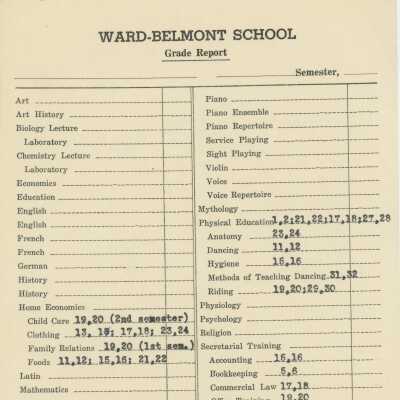 WARD-BELMONT SCHOOL
Grade Report
Semester,
Art
Art History
Biology Lecture
Laboratory
Chemistry Lecture
Laboratory
Economics
Education
English
English
French
French
German
History
History
Home Economics
Child Care 19,20 (2nd semester)
Clothing 13, 15; 17,18; 23,24
Family Relations 19,20 (1st sem.)
Foods 11,12; 15,16; 21,22
Latin
Mathematics
Piano
Piano Ensemble
Piano Repertoire
Service Playing
Sight Playing
Violin
Voice
Voice Repertoire
Mythology
Physical Education 1,2;21,22;17,18;27,28
Anatomy 23,24
Dancing 11,12
Hygiene 15,16
Methods of Teaching Dancing 31,32
Riding 19,20;29,30
Physiology
Psychology
Religion
Secretarial Training
Accounting 15,16
Bookkeeping 5,6
Commercial Law 17,18
19,20